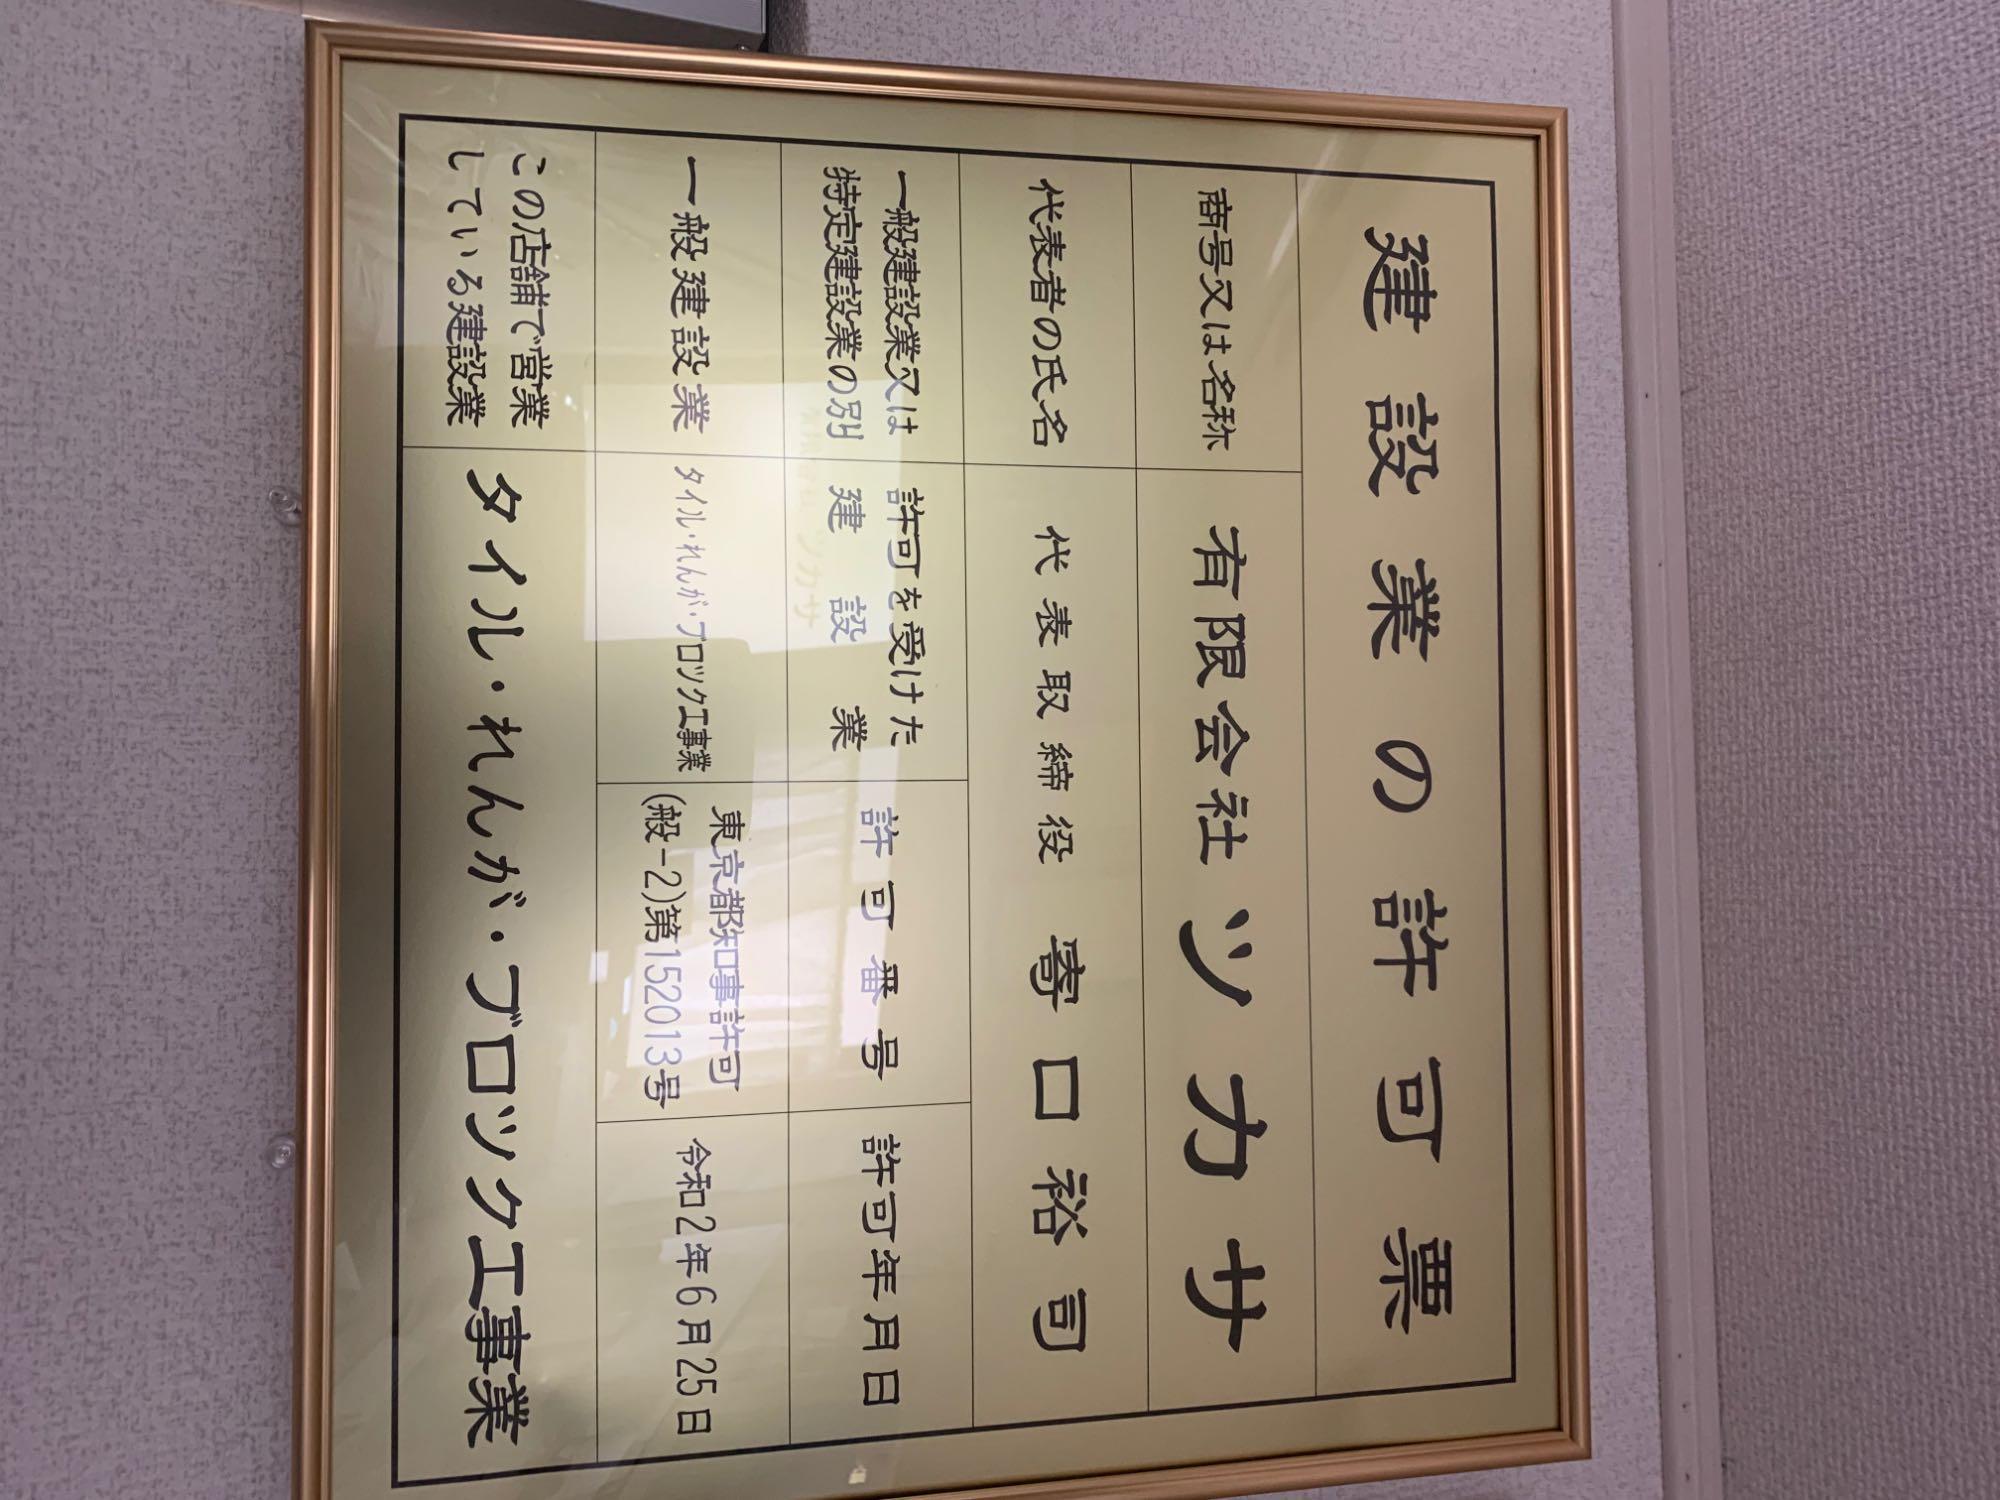 建設業の許可票
商号又は名称
有限会社ツカサ
代表者の氏名
代表取締役 寄口裕司
一般建設業又は
特定建設業の別
許可を受けた
建設業
許可番号
許可年月日
一般建設業
タイル・れんが・ブロック工事業
東京都知事許可
(般-2)第152013号
令和2年6月25日
この店舗で営業
している建設業
タイル・れんが・ブロック工事業